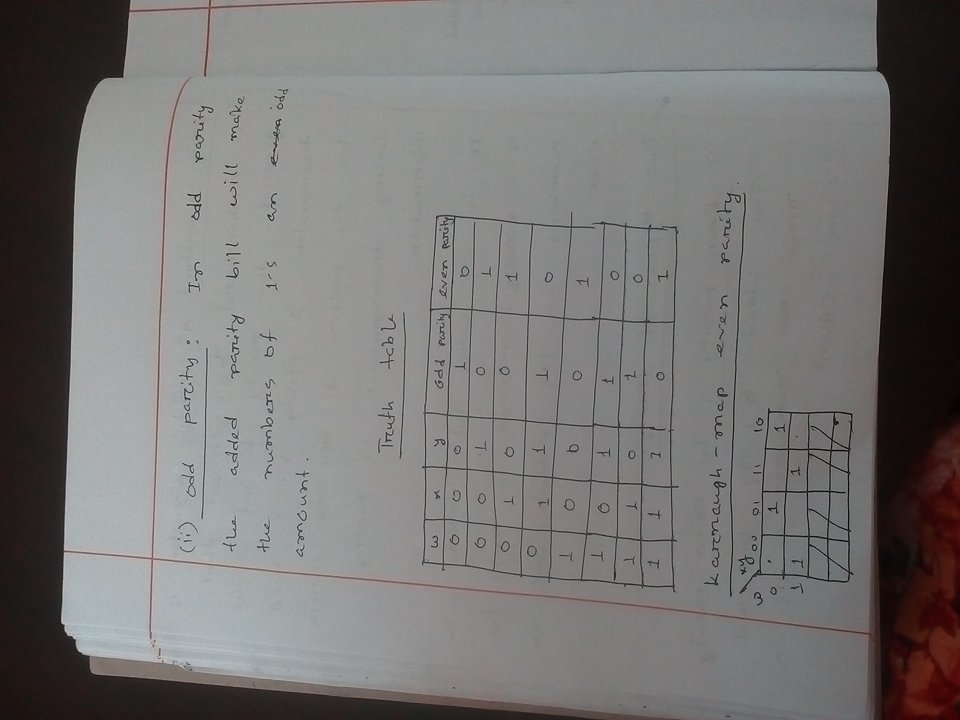 (ii) odd parity: In odd parity
the added parity bill will make
the numbers of 1-s an even odd
amount.
Truth table
w x y odd parity even parity
0 0 0 1 0
0 0 1 0 1
0 1 0 0 1
0 1 1 1 0
1 0 0 0 1
1 0 1 1 0
1 1 0 1 0
1 1 1 0 1
Karnaugh-map even parity.
w xy 00 01 11 10
0 1 1
1 1 1